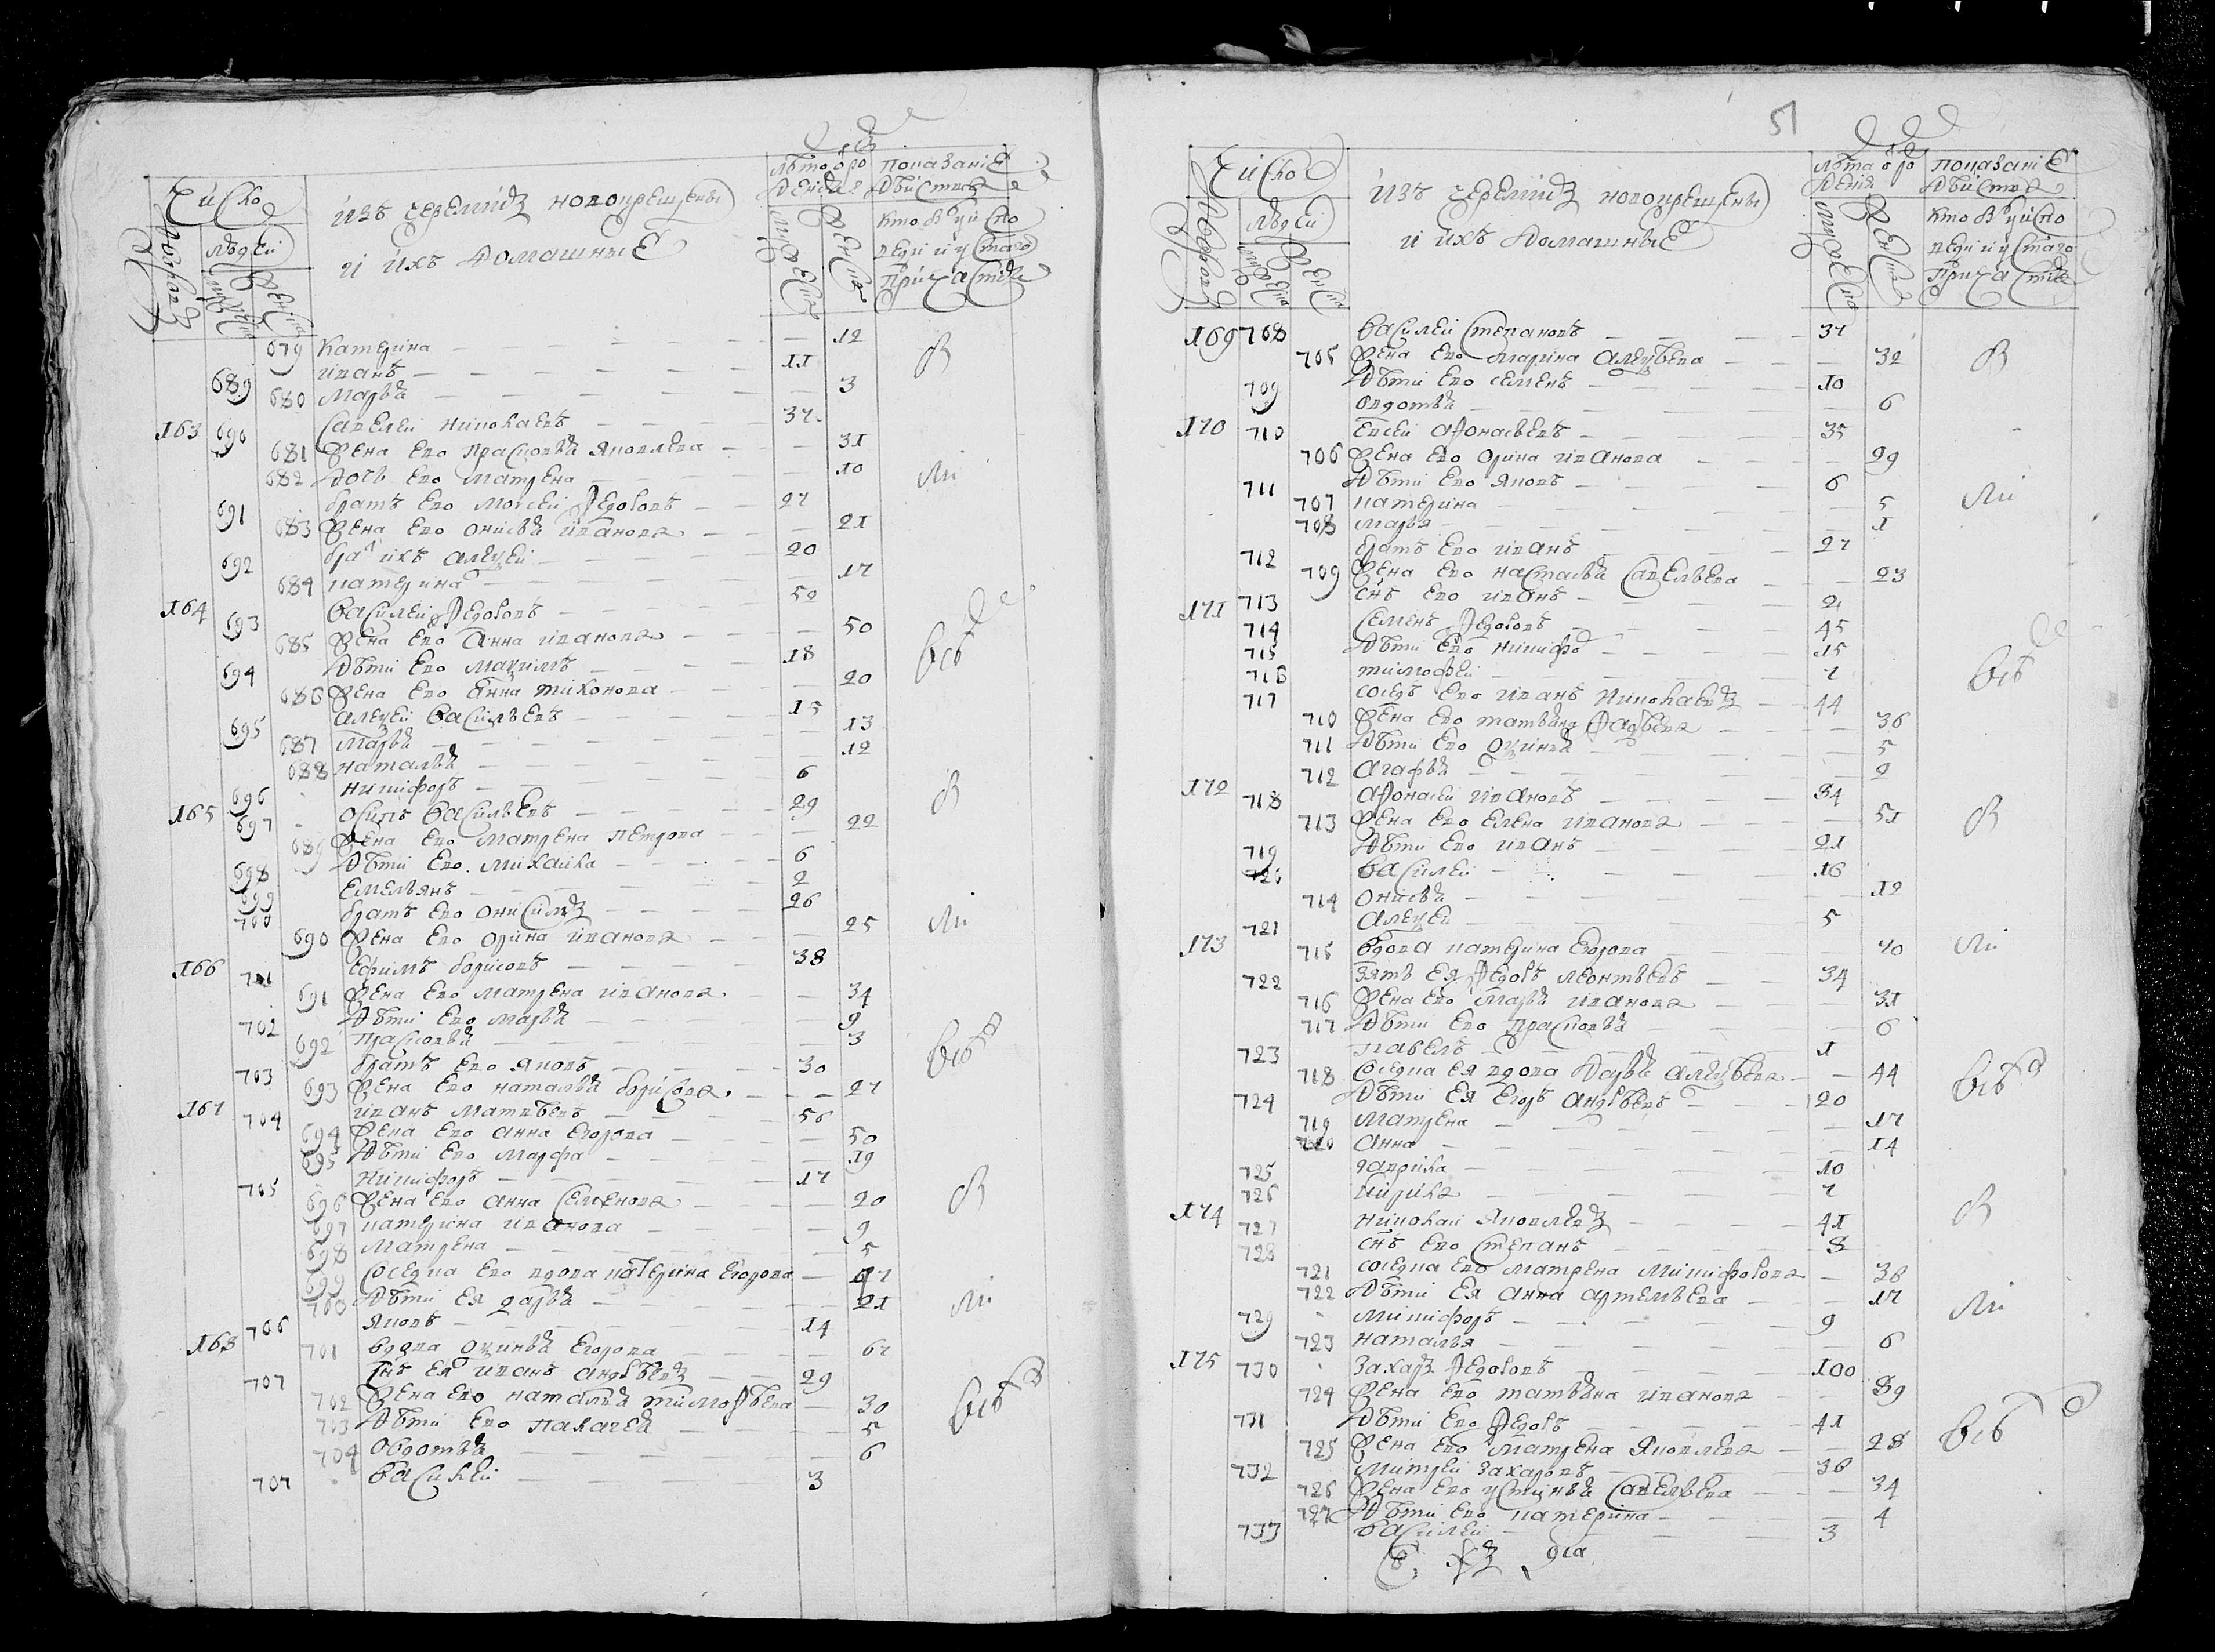 Число
Людей
Изъ черемисъ новокрещены
и ихъ домашные
Лѣта рождения
Показание действа
Кто в число
исповеди и у святаго
причастия
679 Катерина 12
689 Иванъ 11
680 Марья 3
163 690 Савелеи Николаевъ 37
681 Жена ево Прасковья Яковлева 31
682 Дочь ево Матрена 10
691 братъ ево Моисеи Федоровъ 27
683 Жена ево Онисья Иванова 21
692 братъ ихъ Алексеи 20
684 Катерина 17
164 693 Василеи Федоровъ 52
685 Жена ево Анна Иванова 50
694 Дѣти ево Максимъ 18
686 Жена ево Анна Тихонова 20
695 Алексеи Васильевъ 15
687 Марья 13
688 Наталья 12
696 Никифоръ 6
165 697 Осипъ Васильевъ 29
689 Жена ево Матрена Петрова 22
698 Дѣти ево Михаила 6
699 Емельянъ 2
700 братъ ево Онисимъ 26
690 Жена ево Орина Иванова 25
166 701 Ефимъ Борисовъ 38
691 Жена ево Матрена Иванова 34
702 Дѣти ево Марья 9
692 Прасковья 3
703 братъ ево Яковъ 30
693 Жена ево Наталья Борисова 27
167 704 Иванъ Матвѣевъ 56
694 Жена ево Анна Егорова 50
695 Дѣти ево Марфа 19
705 Никифоръ 17
696 Жена ево Анна Семенова 20
697 Катерина Иванова 9
698 Матрена 5
699 Соседка ево вдова Катерина Егорова 47
700 Дѣти ея Дарья 21
706 Яковъ 14
168 701 Вдова Оксинья Егорова 67
707 Снъ ея Иванъ Андрѣевъ 29
702 Жена ево Наталья Тимофѣева 30
703 Дѣти ево Палагея 5
704 Овдотья 6
707 Василеи 3
51
Число
Людей
Изъ черемисъ новокрещены
и ихъ домашные
Лѣта рождения
Показание действа
Кто в число
исповеди и у святаго
причастия
169 708 Василеи Степановъ 37
705 Жена ево Марина Алексѣева 32
709 Дѣти ево Семенъ 10
Овдотья 6
170 710 Евсеи Афонасьевъ 35
706 Жена ево Орина Иванова 29
711 Дѣти ево Яковъ 6
707 Катерина 5
708 Марья 1
712 братъ ево Иванъ 27
709 Жена ево Настасья Савельева 23
713 Снъ ево Иванъ 2
171 714 Семенъ Федоровъ 45
715 Дѣти ево Никифоръ 15
716 Тимофеи 7
717 Соседъ ево Иванъ Николаевъ 44
710 Жена ево Татьяна 36
711 Дѣти ево Оксинья 5
712 Агафья 2
172 718 Афонасеи Ивановъ 54
713 Жена ево Елена Иванова 51
719 Дѣти ево Иванъ 21
720 Василеи 16
714 Онисья 12
721 Алексеи 5
173 715 Вдова Катерина Егорова 70
722 Зять ея Федоръ Леонтьевъ 34
716 Жена ево Марья Иванова 31
717 Дѣти ево Прасковья 6
723 Павелъ 1
718 Соседка ея вдова Дарья Алексѣева 44
724 Дѣти ея Егоръ Андрѣевъ 20
719 Матрена 17
720 Анна 14
725 Гаврила 10
726 Кирила 7
174 727 Николаи Яковлевъ 41
728 Снъ ево Степанъ 8
721 Соседка ево Матрена Микифорова 38
722 Дѣти ея Анна Артемьева 17
729 Микифоръ 9
723 Наталья 6
175 730 Захаръ Федоровъ 100
724 Жена ево Татьяна Иванова 89
731 Дѣти ево Федоръ 41
725 Жена ево Матрена Яковлева 28
732 Митреи Захаровъ 36
726 Жена ево Устинья Савельева 34
727 Дѣти ево Катерина 4
733 Василеи 3